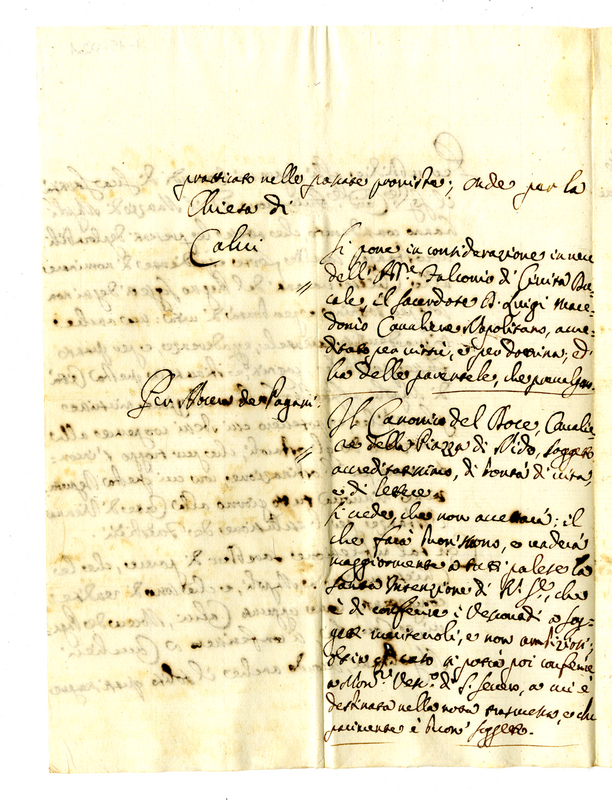 pratticato nelle passate proviste; onde per la
Chiesa di
Calvi
Si pone in considerazione in vece
dell' Falconio di Civita Du-
cale, il Sacerdote D. Luigi Mace-
donio Cavaliere Napolitano, accre-
ditato per virtù, e per dottrina; ed
ha delle parentele, che prevalgono.
Per Nocera de Pagani.
Il Canonico del Doce, Cavalie-
re della Piazza di Nido, soggetto
accreditatissimo, di bontà di vita,
e di lettere.
Si crede, che non accettarà; il
che farà buon suono, e renderà
maggiormente a tutti palese la
santa intenzione di N. Sre., che
è di conferire i Vescovadi a sog-
getti meritevoli, e non ambiziosi;
ed in caso si potrà poi conferire
a Mon.re Vesc.o di S. Severo, a cui è
destinata nella nota trasmessa, e che
parimente è buon soggetto.